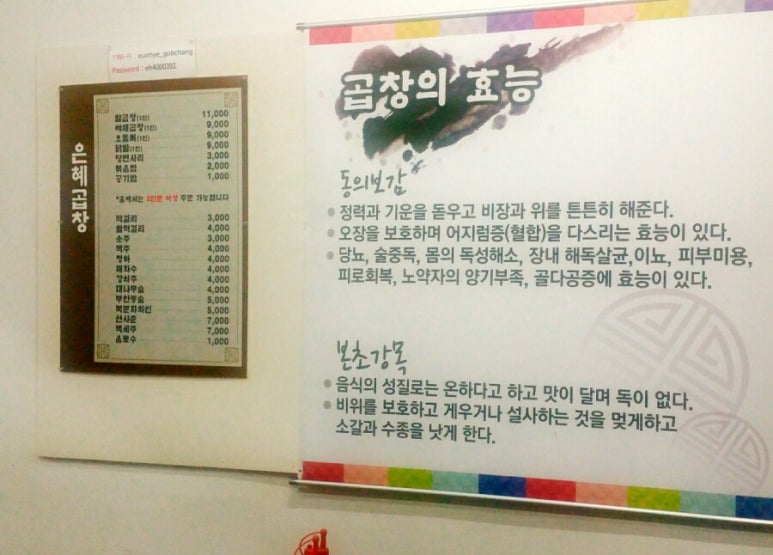 Wi-Fi : eunhye_gobchang
Password : eh4000392
은혜곱창
알곱창(1인) 11,000
야채곱창(1인) 9,000
오돌뼈(1인) 9,000
닭발(1인) 9,000
당면사리 3,000
볶음밥 2,000
공기밥 1,000
*홀에서는 2인분 이상 주문 가능합니다
막걸리 3,000
쌀막걸리 4,000
소주 3,000
맥주 4,000
청하 4,000
매화수 4,000
강화주 4,000
대나무술 4,000
부안뽕술 5,000
복분자와인 5,000
산사춘 7,000
백세주 7,000
음료수 1,000
곱창의 효능
동의보감
정력과 기운을 돋우고 비장과 위를 튼튼히 해준다.
오장을 보호하며 어지럼증(혈합)을 다스리는 효능이 있다.
당뇨, 술중독, 몸의 독성해소, 장내 해독살균,이뇨, 피부미용,
피로회복, 노약자의 양기부족, 골다공증에 효능이 있다.
본초강목
음식의 성질로는 온하다고 하고 맛이 달며 독이 없다.
비위를 보호하고 게우거나 설사하는 것을 멎게하고
소갈과 수종을 낫게 한다.